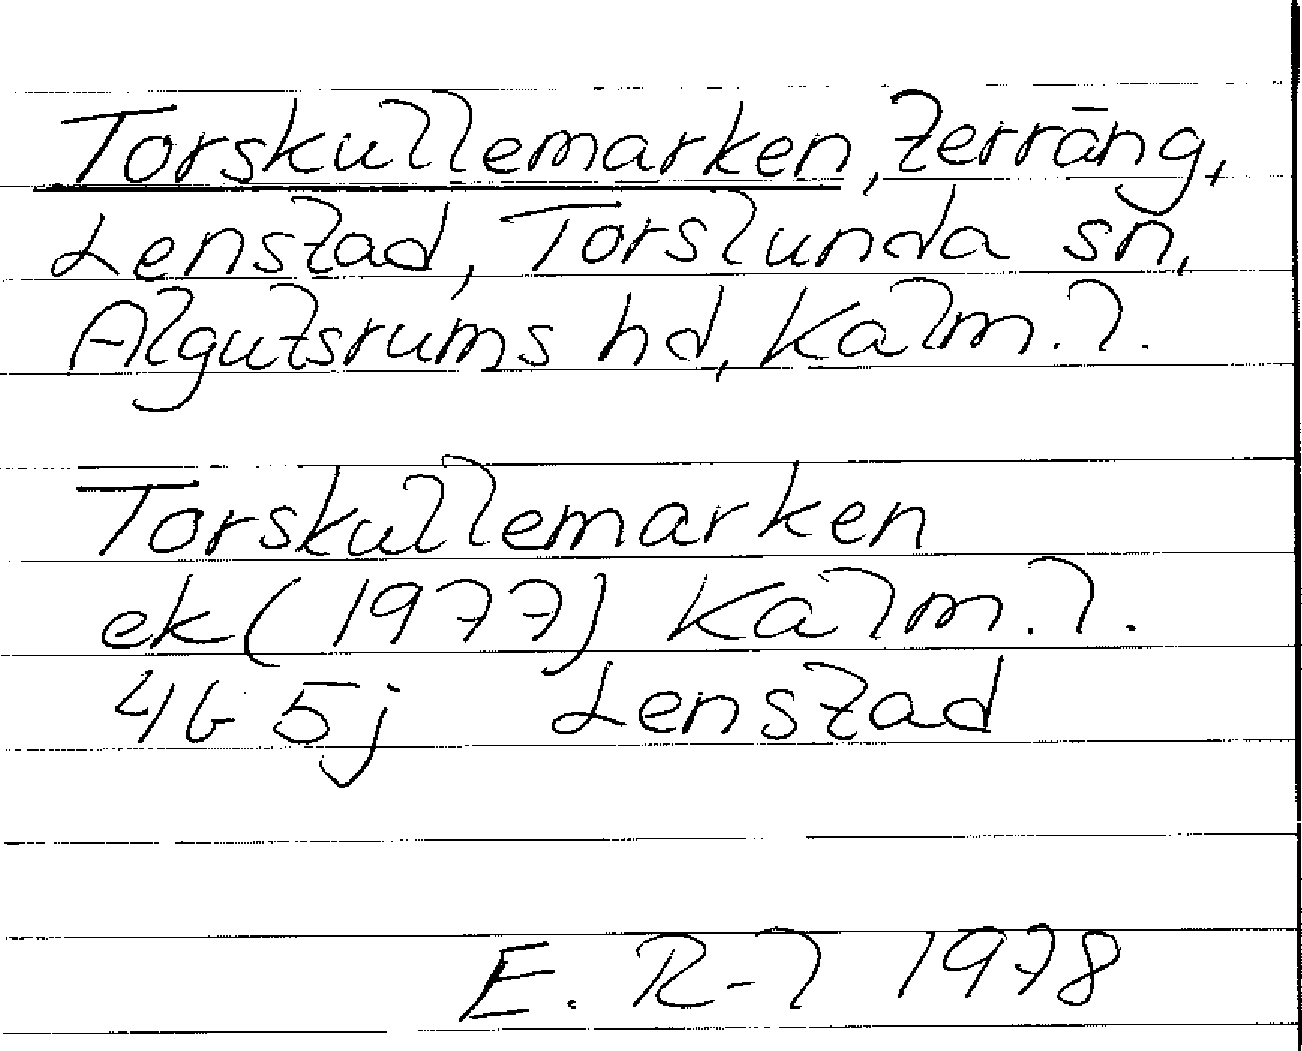 Torskullemarken, terräng,
Lenstad, Torslunda sn,
Algutsrums hd, Kalm. l.
Torskullemarken
ek (1977) Kalm. l.
4G 5j Lenstad
E. R-l 1978